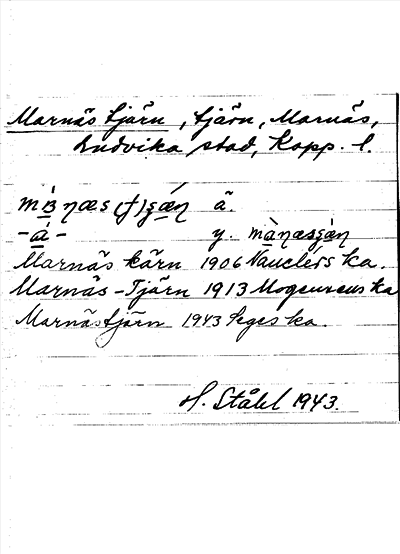 Marnäs tjärn, tjärn, Marnäs,
Ludvika stad, Kopp. l.
ä.
-á- y. mànæsʂàn
Marnäs kärn 1906 Nauclérs ka.
Marnäs-Tjärn 1913 ka
Marnästjärn 1943 Seges ka.
H. Ståhl 1943.